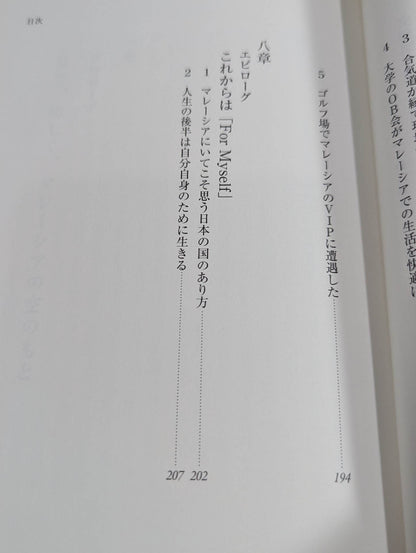 3 合気道が
4 大学のOB会がマレーシアでの生活を快適に
5 ゴルフ場でマレーシアのVIPに遭遇した 194
八章
エピローグ
これからは「For Myself」
1 マレーシアにいてこそ思う日本の国のあり方 202
2 人生の後半は自分自身のために生きる 207
目次